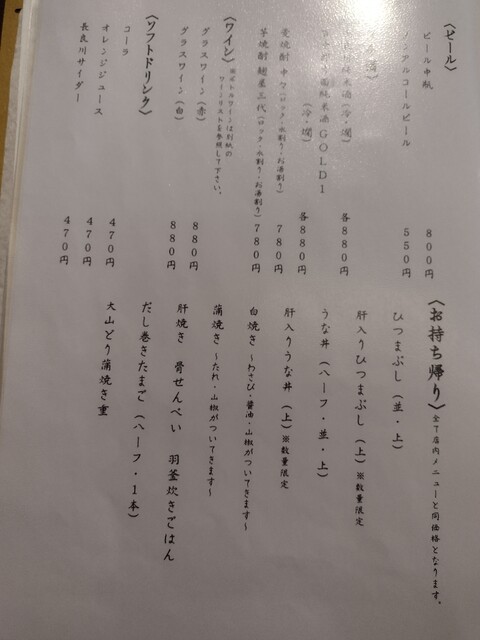 〈ビール〉
ビール中瓶 800円
ノンアルコールビール 550円
純米酒(冷・燗) 各880円
純米酒GOLD1(冷・燗) 各880円
麦焼酎 (ロック・水割り・お湯割り) 780円
芋焼酎 麹屋三代(ロック・水割り・お湯割り) 780円
〈ワイン〉※ボトルワインは別紙の
ワインリストを参照して下さい。
グラスワイン(赤) 880円
グラスワイン(白) 880円
〈ソフトドリンク〉
コーラ 470円
オレンジジュース 470円
長良川サイダー 470円
〈お持ち帰り〉全て店内メニューと同価格となります。
ひつまぶし(並・上)
肝入りひつまぶし(上)※数量限定
うな丼(ハーフ・並・上)
肝入りうな丼(上)※数量限定
白焼き~わさび・醤油・山椒がついてきます~
蒲焼き~たれ・山椒がついてきます~
肝焼き 骨せんべい 羽釜炊きごはん
だし巻きたまご(ハーフ・1本)
大山どり蒲焼き重